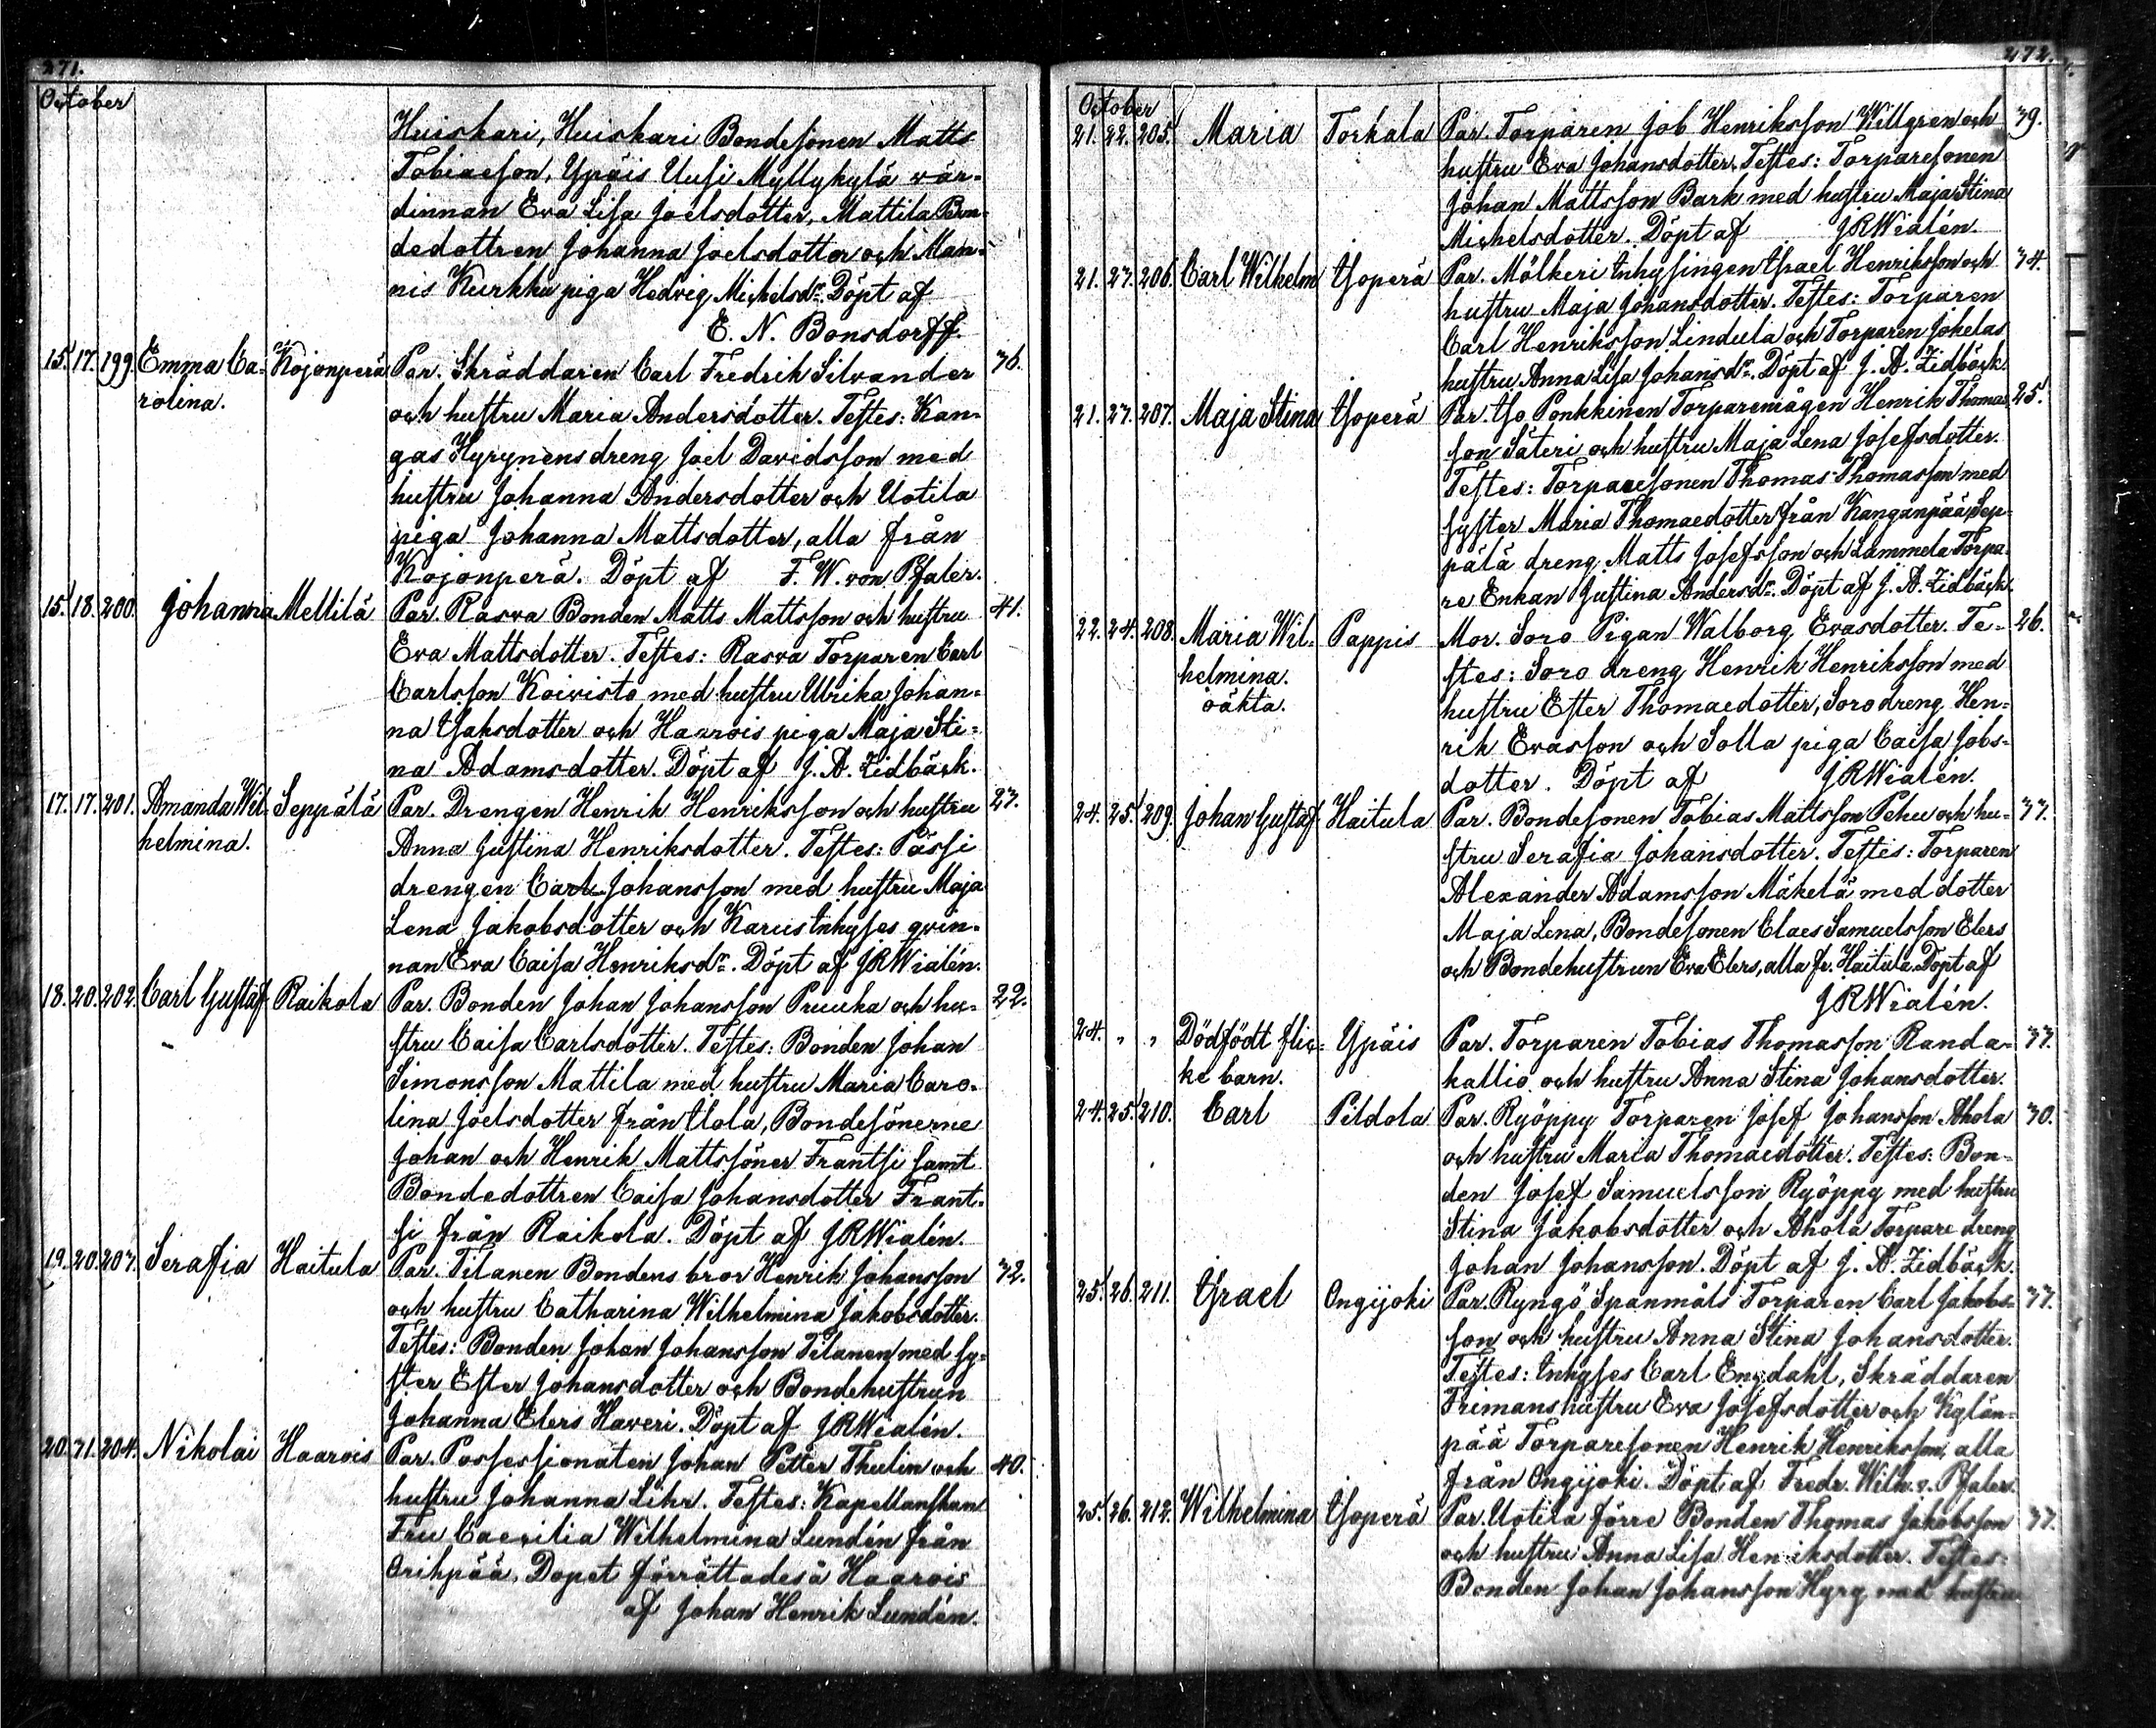 271.
October
Huiskari, Huiskari Bondesonen Matts
Tobiaeson, Ypäis Uusi Myllykylä vär-
dinnan Eva Lisa Joelsdotter, Mattila Bon-
dedottren Johanna Joelsdotter och Man-
nis Kurkku piga Hedvig Michelsdr. Döpt af
E. N. Bonsdorff.
15. 17. 199. Emma Ca- Kojonperä Par. Skräddaren Carl Fredrik Silvander 36.
rolina. och hustru Maria Andersdotter. Testes: Kan-
gas Hyrynens dreng Joel Davidsson med
hustru Johanna Andersdotter och Uotila
piga Johanna Mattsdotter, alla från
Kojonperä. Döpt af F. W. von Pfaler.
15. 18. 200. Johanna Mellilä Par. Rasva Bonden Matts Mattsson och hustru 41.
Eva Mattsdotter. Testes: Rasva Torparen Carl
Carlsson Koivisto med hustru Ulrika Johan-
na Isaksdotter och Haarois piga Maja Sti-
na Adamsdotter. Döpt af J. A. Zidbäck.
17. 17. 201. Amanda Wil- Seppälä Par. Drengen Henrik Henriksson och hustru 23.
helmina. Anna Justina Henriksdotter. Testes: Pässi
drengen Carl Johansson med hustru Maja
Lena Jakobsdotter och Karus Inhyses qvin-
nan Eva Caisa Henriksdr. Döpt af JRWialén.
18. 20. 202. Carl Gustaf Raikola Par. Bonden Johan Johansson Pruuka och hu- 22.
stru Caisa Carlsdotter. Testes: Bonden Johan
Simonsson Mattila med hustru Maria Caro-
lina Joelsdotter från Uola, Bondesönerne
Johan och Henrik Mattssöner Frantsi samt
Bondedottren Caisa Johansdotter Frant-
si från Raikola. Döpt af JRWialén.
19. 20. 203. Serafia Haitula Par. Tilanen Bondens bror Henrik Johansson 32.
och hustru Catharina Wilhelmina Jakobsdotter.
Testes: Bonden Johan Johansson Tilanen med sy-
ster Ester Johansdotter och Bondehustrun
Johanna Elers Haveri. Döpt af JRWialén.
20. 31. 204. Nikolai Haarois Par. Possessionaten Johan Petter Thulin och 40.
hustru Johanna Lihr. Testes: Kapellanskan
Fru Caecilia Wilhelmina Lundén från
Orihpää. Dopet förrättades å Haarois
af Johan Henrik Lundén.
272.
October
21. 22. 205. Maria Torkala Par. Torparen Job Henriksson Willgren och 39.
hustru Eva Johansdotter. Testes: Torparesonen
Johan Mattsson Bark med hustru Maja Stina
Michelsdotter. Döpt af JRWialén.
21. 23. 206. Carl Wilhelm Isoperä Par. Mölkeri Inhysingen Israel Henriksson och 34.
hustru Maja Johansdotter. Testes: Torparen
Carl Henriksson Lindula och Torparen Johelas
hustru Anna Lisa Johansdr. Döpt af J. A. Zidbäck.
21. 23. 207. Maja Stina Isoperä Par. Iso Ponkkinen Torparemågen Henrik Thomas- 25.
son Säteri och hustru Maja Lena Josefsdotter.
Testes: Torparesonen Thomas Thomasson med
syster Maria Thomaedotter från Kanganpää, Sep-
pälä dreng Matts Josefsson och Lammela Torpa-
re Enkan Justina Andersdr. Döpt af J. A. Zidbäck.
22. 24. 208. Maria Wil- Pappis Mor. Soro Pigan Walborg Evasdotter. Te- 26.
helmina. stes: Soro dreng Henrik Henriksson med
oäkta. hustru Ester Thomaedotter, Soro dreng Hen-
rik Erasson och Solla piga Caisa Jobs-
dotter. Döpt af JRWialén.
24. 25. 209. Johan Gustaf Haitula Par. Bondesonen Tobias Mattsson Pehu och hu- 33.
stru Serafia Johansdotter. Testes: Torparen
Alexander Adamsson Mäkelä med dotter
Maja Lena, Bondesonen Claes Samuelsson Elers
och Bondehustrun Eva Elers, alla fr. Haitula. Döpt af
JRWialén.
24. " " Dödfödt flic- Ypäis Par. Torparen Tobias Thomasson Randa- 33.
ke barn. kallio och hustru Anna Stina Johansdotter.
24. 25. 210. Carl Pildola Par. Ryöppy Torparen Josef Johansson Ahola 30.
och hustru Maria Thomaedotter. Testes: Bon-
den Josef Samuelsson Ryöppy med hustru
Stina Jakobsdotter och Ahola Torpare dreng
Johan Johansson. Döpt af J. A. Zidbäck.
25. 26. 211. Israel Ongijoki Par. Ryngö Spanmåls Torparen Carl Jakobs- 33.
son och hustru Anna Stina Johansdotter.
Testes: Inhyses Carl Engdahl, Skräddaren
Frimans hustru Eva Josefsdotter och Kylän-
pää Torparesonen Henrik Henriksson, alla
från Ongijoki. Döpt af Fredr. Wilh. v. Pfaler.
25. 26. 212. Wilhelmina Isoperä Par. Uotila förre Bonden Thomas Jakobsson 33.
och hustru Anna Lisa Henriksdotter. Testes:
Bonden Johan Johansson Hyry med hustru